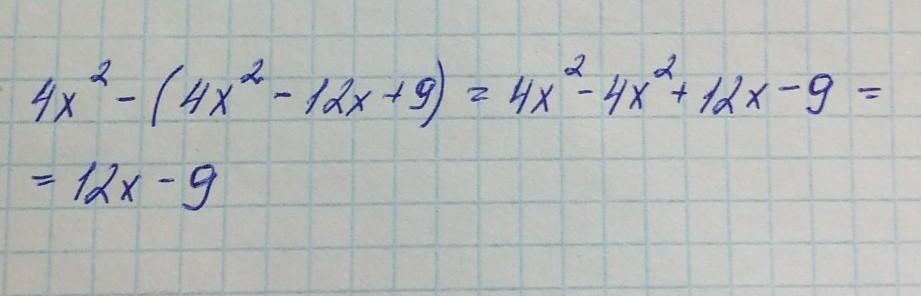 4x² - (4x² - 12x + 9) = 4x² - 4x² + 12x - 9 =
= 12x - 9